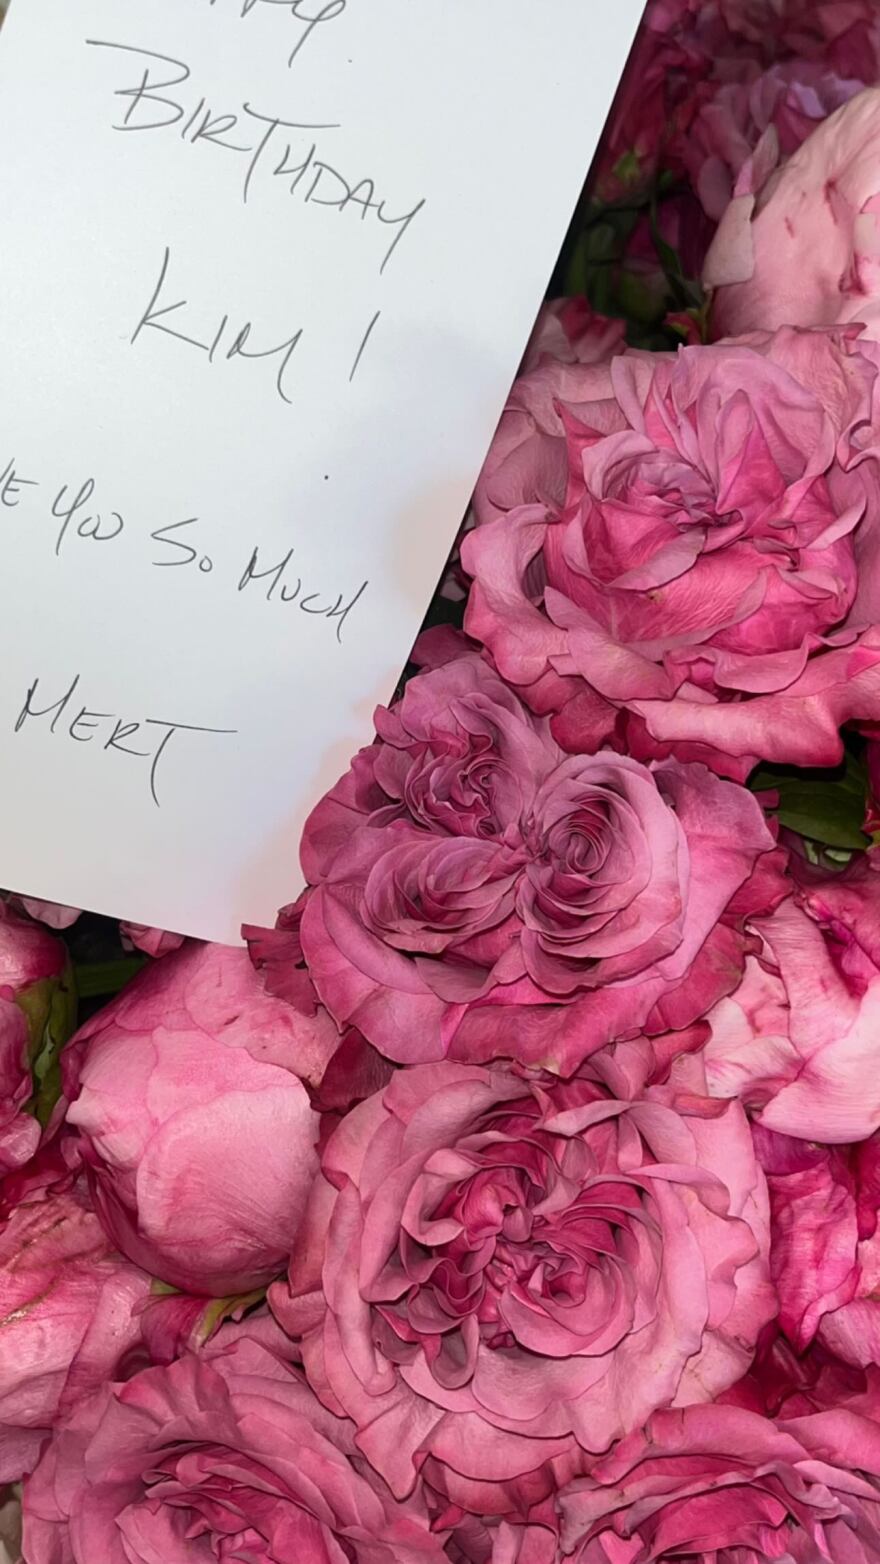 BIRTHDAY
KIM!
YOU SO MUCH
MERT